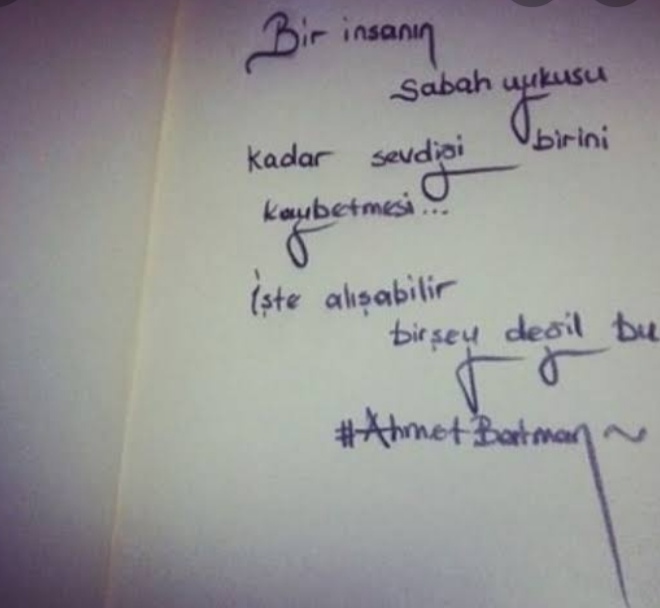 Bir insanın
sabah uykusu
kadar sevdigi birini
kaybetmesi...
İşte alışabilir
birşey degil bu
#Ahmet Batman ~